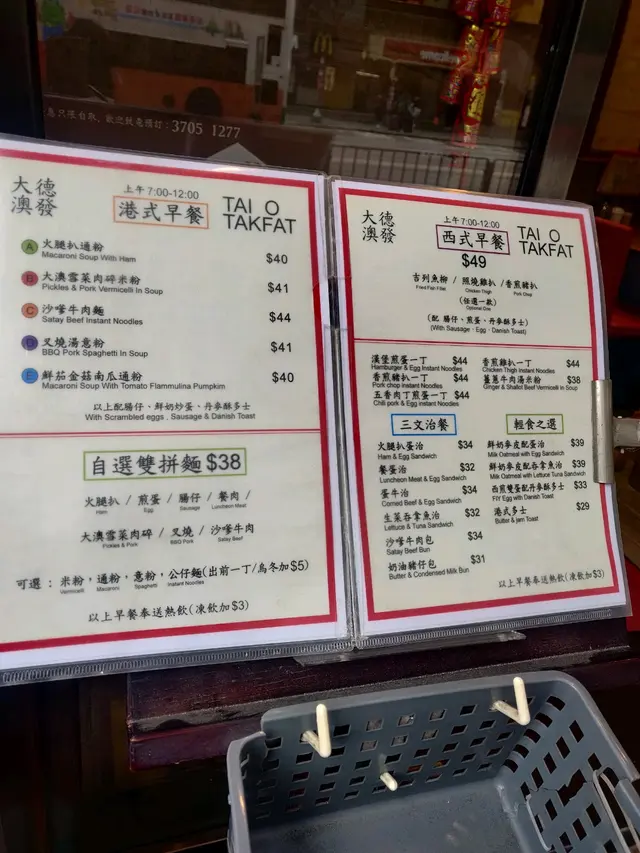 3705 1277
大德
澳發
上午7:00-12:00
港式早餐
TAI O
TAKFAT
A 火腿扒通粉
Macaroni Soup With Ham
$40
B 大澳雪菜肉碎米粉
Pickles & Pork Vermicelli In Soup
$41
C 沙嗲牛肉麵
Satay Beef Instant Noodles
$44
D 叉燒湯意粉
BBQ Pork Spaghetti In Soup
$41
E 鮮茄金菇南瓜通粉
Macaroni Soup With Tomato Flammutina Pumpkim
$40
以上配腸仔、鮮奶炒蛋、丹麥多士
With Scrambled eggs . Sausage & Danish Toast
自選雙拼麵$38
火腿扒 / 煎蛋 / 腸仔 / 餐肉 /
Ham Egg Sausage Luncheon Meat
大澳雪菜肉碎 / 叉燒 / 沙嗲牛肉
Pickles & Pork BBQ Pork Satay Beef
可選：米粉，通粉，意粉，公仔麵(出前一丁/烏冬加$5)
Vermicelli Macaroni Spaghetti Instant Noodles
以上早餐奉送熱飲(凍飲加$3)
大德
澳發
上午7:00-12:00
西式早餐
$49
TAI O
TAKFAT
吉列魚柳 / 照燒雞扒 / 香煎豬扒
Fried Fish Fillet Chicken Thigh Pork Chop
(任選一款)
(Optional One)
(配 腸仔、煎蛋、丹麥多士)
(With Sausage . Egg . Danish Toast)
漢堡煎蛋一丁 $44
Hamburger & Egg Instant Noodles
香煎豬扒一丁 $44
Pork chop instant Noodles
五香肉丁煎蛋一丁 $44
Chili pork & Egg instant Noodles
香煎雞扒一丁 $44
Chicken Thigh Instant Noodles
薑蔥牛肉湯米粉 $38
Ginger & Shallot Beef Vermicelli In Soup
三文治餐
火腿扒蛋治 $34
Ham & Egg Sandwich
餐蛋治 $32
Luncheon Meat & Egg Sandwich
蛋牛治 $34
Corned Beef & Egg Sandwich
生菜吞拿魚治 $32
Lettuce & Tuna Sandwich
沙嗲牛肉包 $34
Satay Beef Bun
奶油豬仔包 $31
Butter & Condensed Milk Bun
輕食之選
鮮奶麥皮配蛋治 $39
Milk Oatmeal with Egg Sandwich
鮮奶麥皮配吞拿魚治 $39
Milk Oatmeal with Lettuce Tuna Sandwich
西煎雙蛋配丹麥酥多士 $33
FIY Egg with Danish Toast
港式多士 $29
Butter & jam Toast
以上早餐奉送熱飲(凍飲加$3)